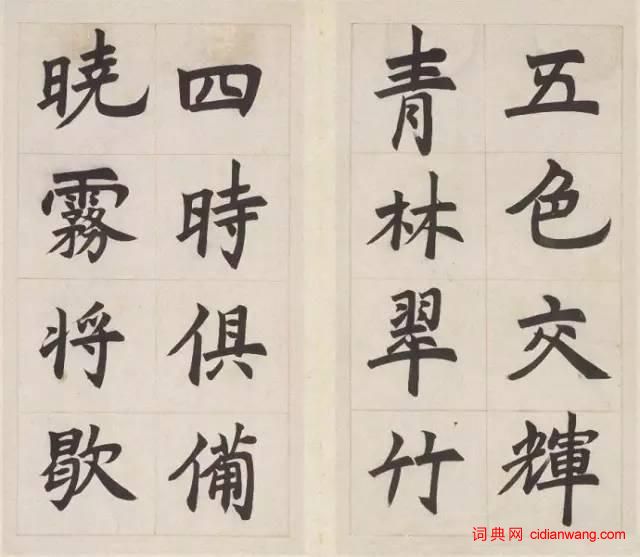 五色交輝
青林翠竹
四時俱備
曉霧将歇
词典网 cidianwang.com